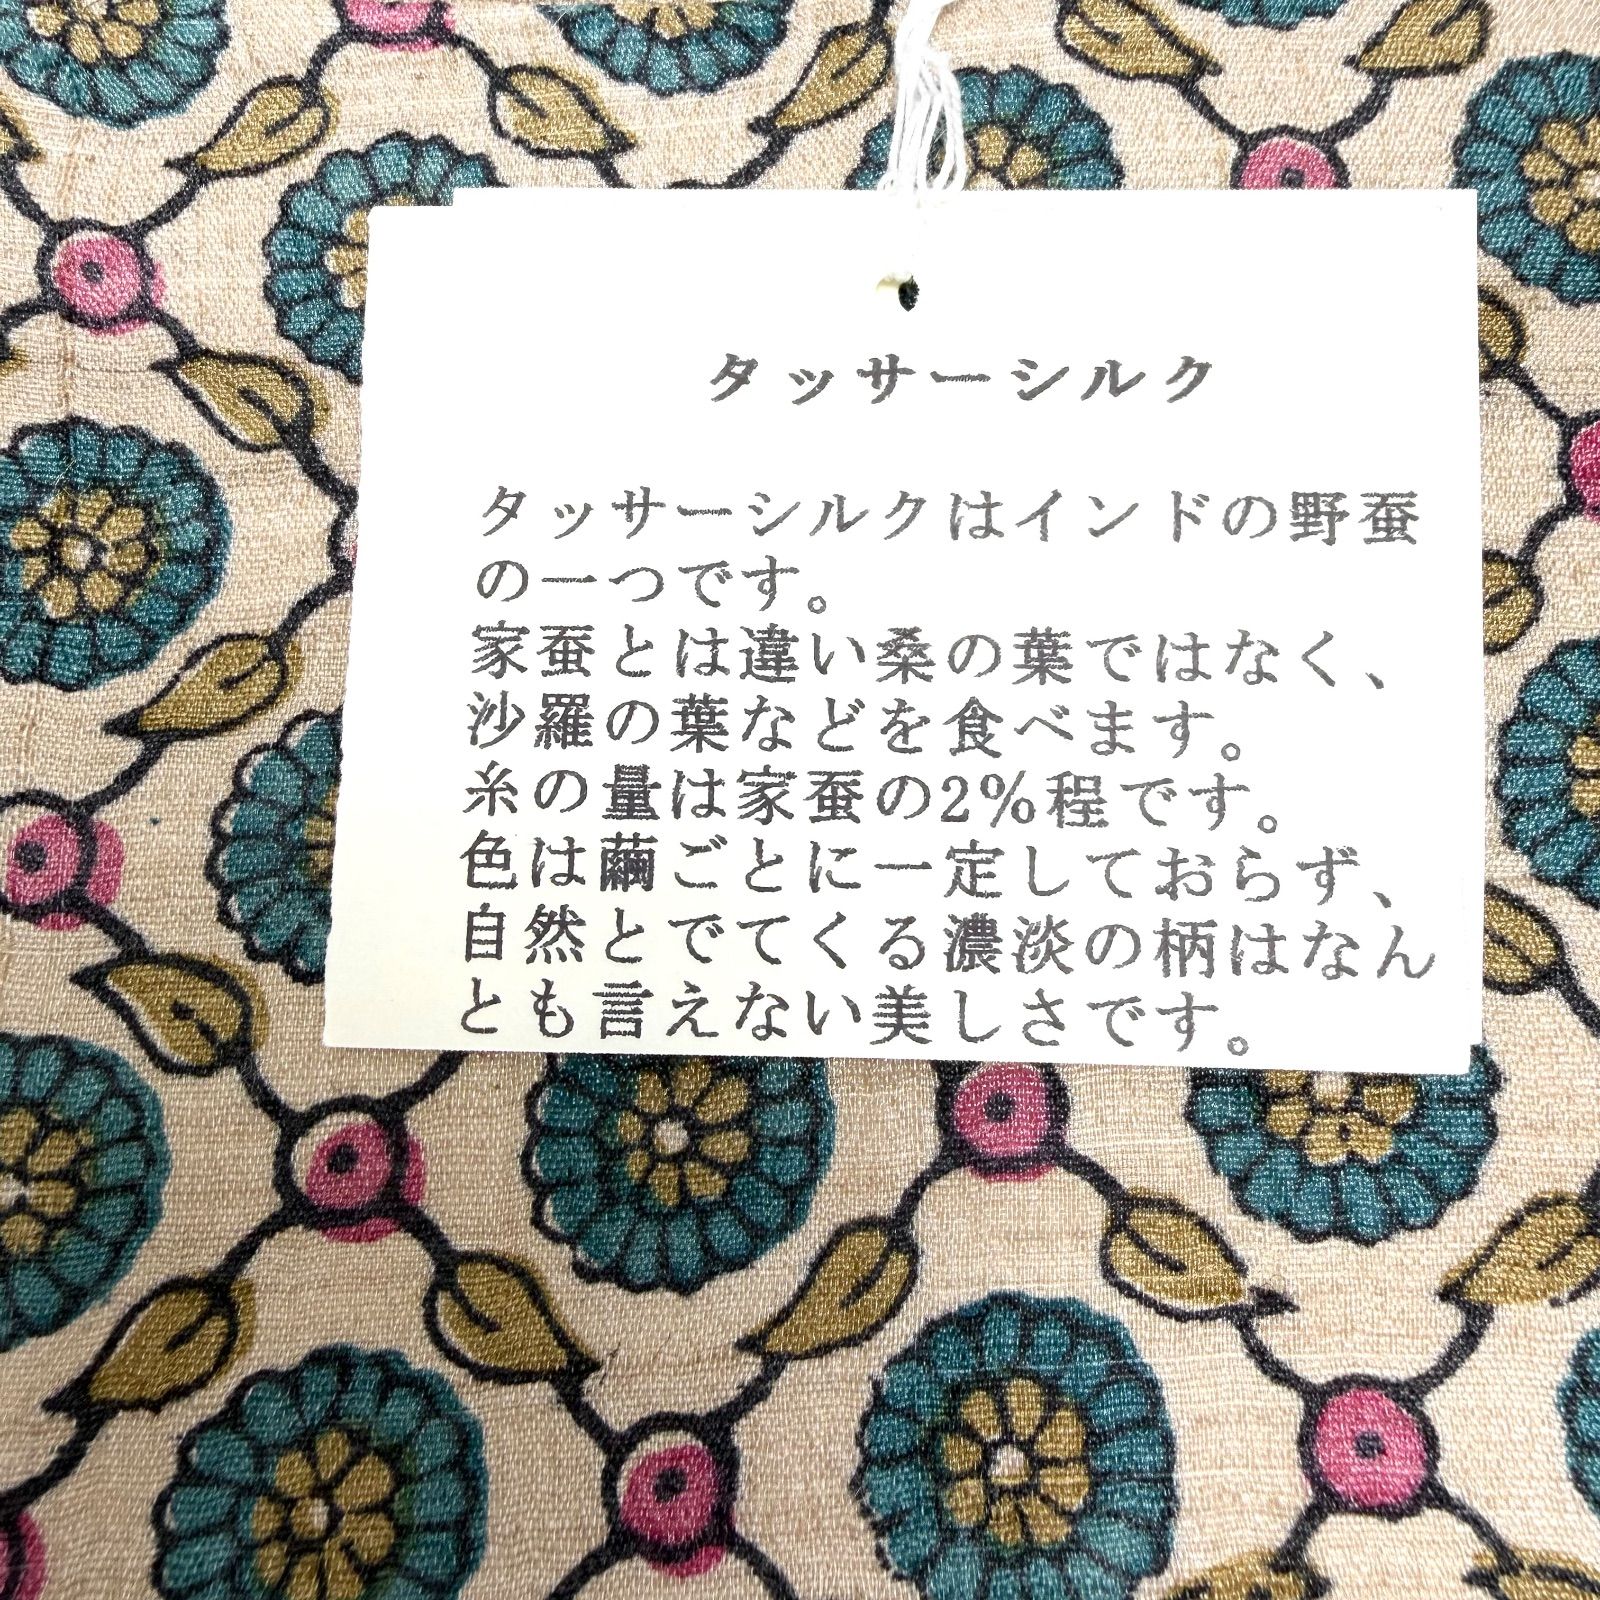 タッサーシルク
タッサーシルクはインドの野蚕
の一つです。
家蚕とは違い桑の葉ではなく、
沙羅の葉などを食べます。
糸の量は家蚕の2%程です。
色は繭ごとに一定しておらず、
自然とでてくる濃淡の柄はなん
とも言えない美しさです。